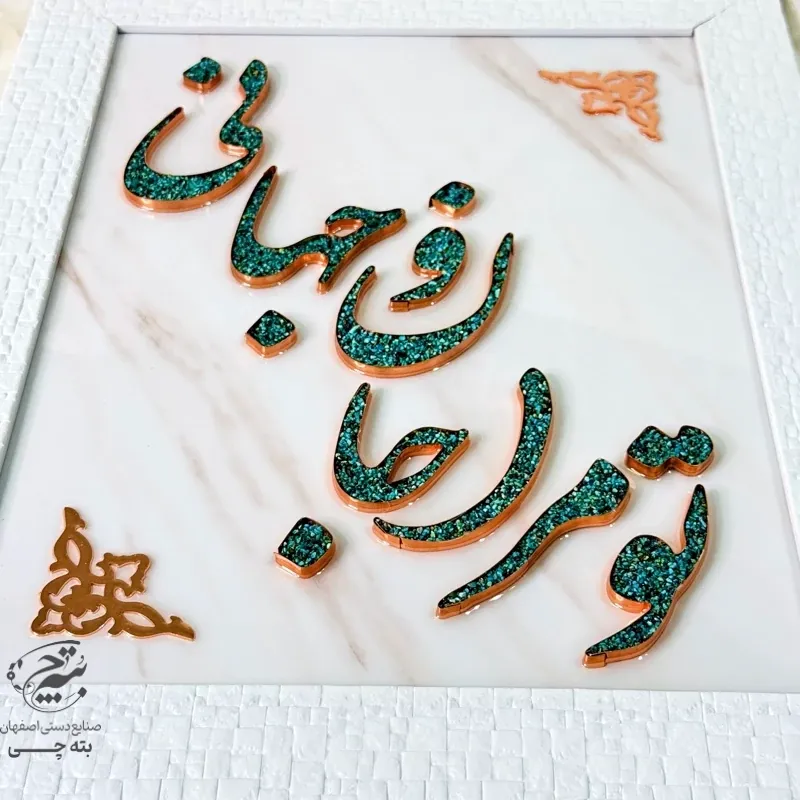 تو مرا جان و جهانی
بته چی
صنایع دستی اصفهان
بته چی